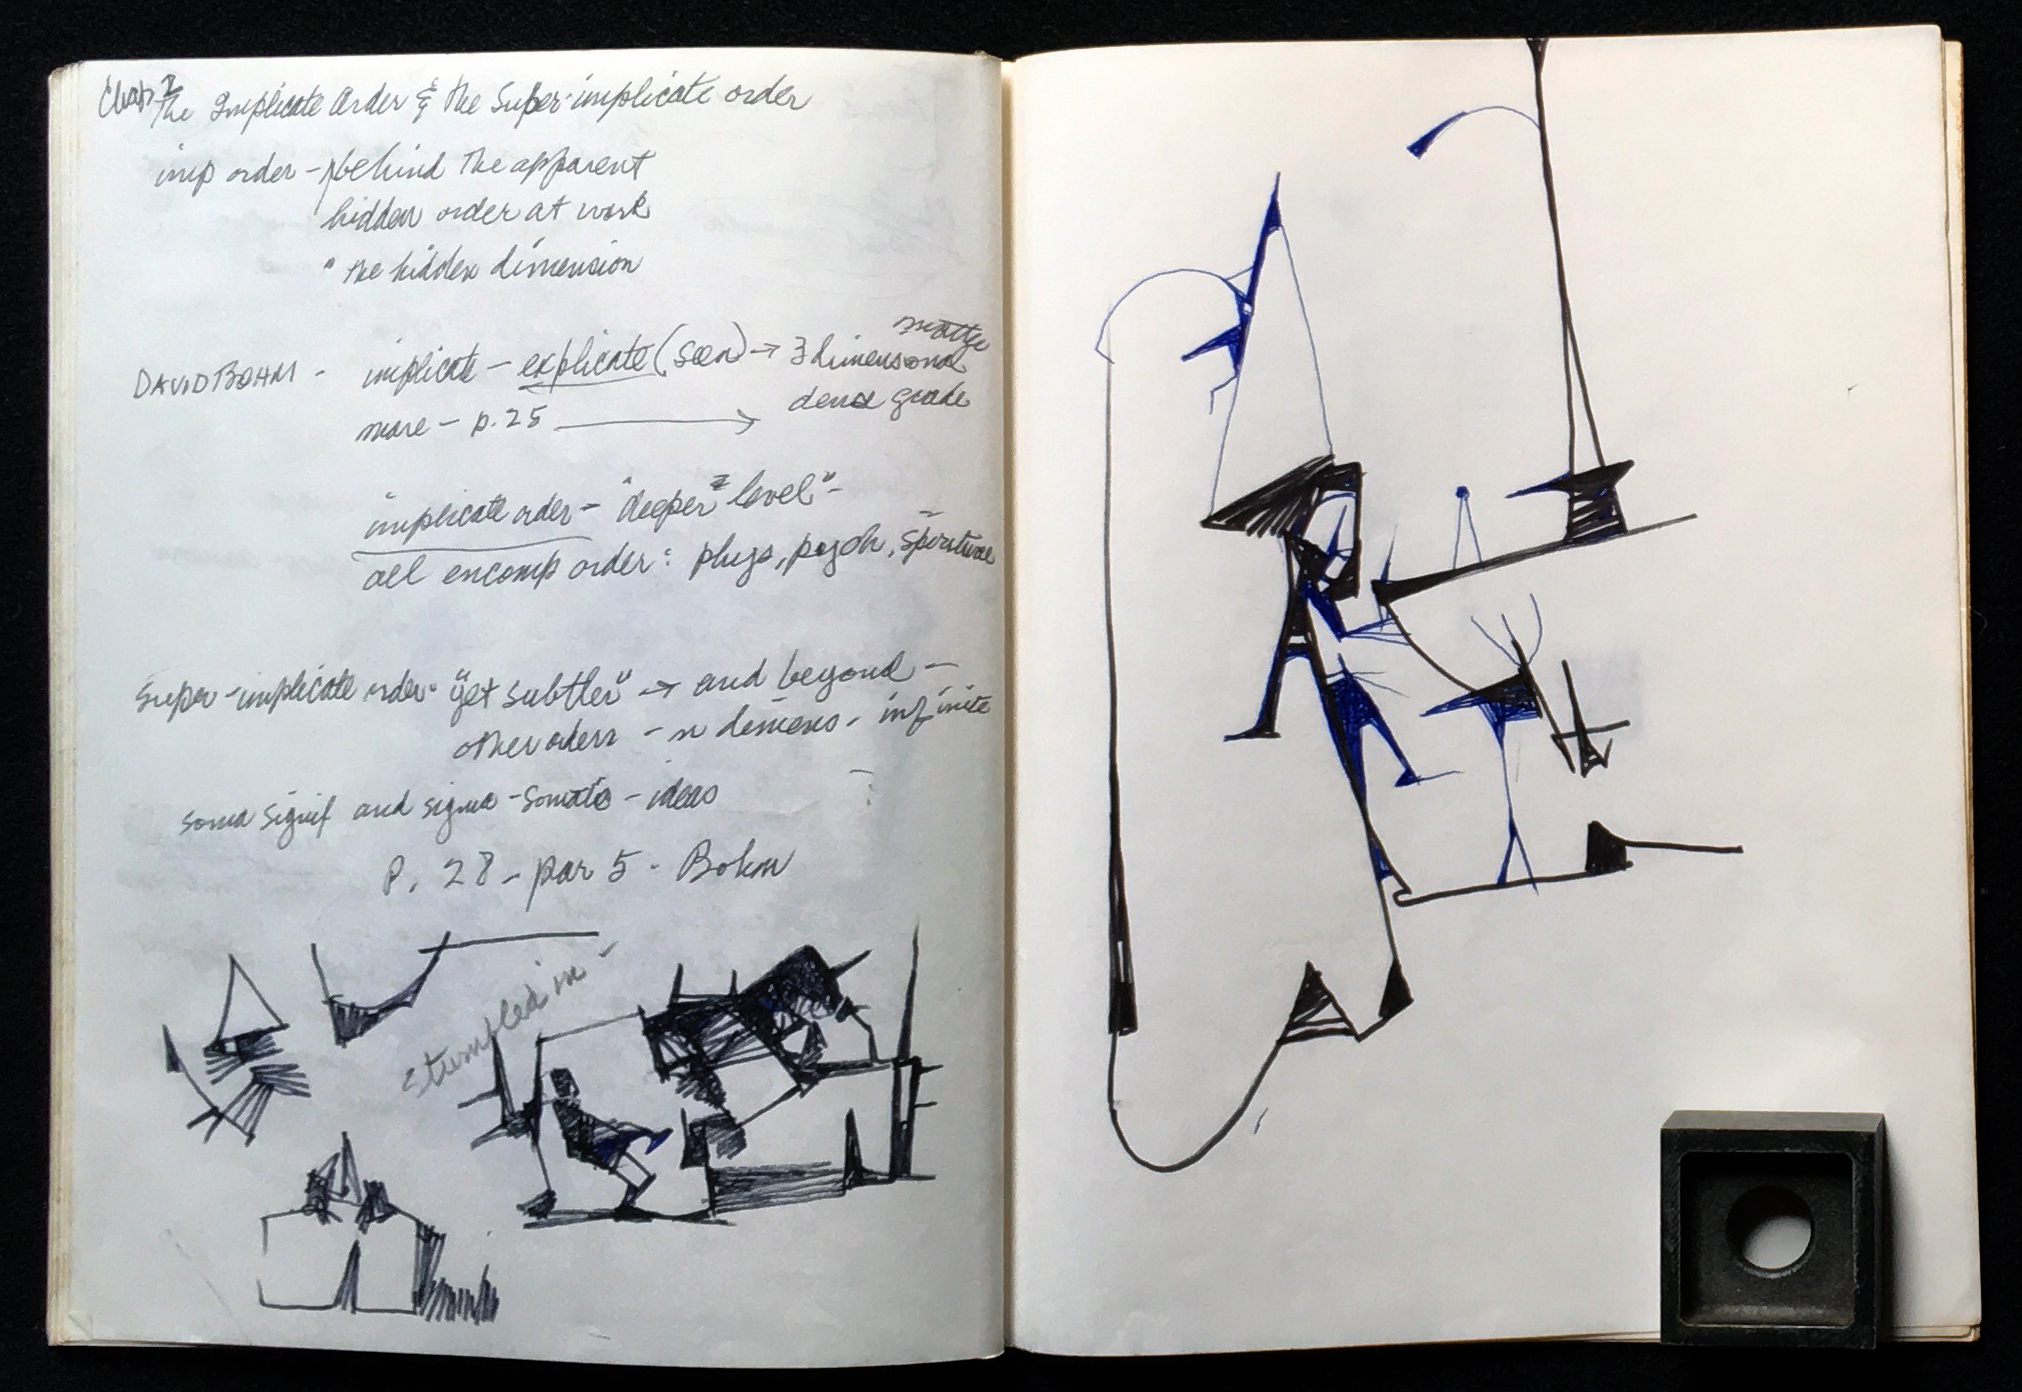 Chap 2
The Implicate Order & the Super-implicate order
imp order - behind the apparent
hidden order at work
" the hidden dimension
DAVID BOHM - implicate - explicate (seen) → 3 dimensional
matter
more - p. 25 → dense grade
implicate order - "deeper level" -
all encomp order: phys, psych, spiritual
Super-implicate order - "yet subtler" → and beyond -
other orders - n dimens - infinite
soma signif and signa-somatic - ideas
P. 28 - par 5 - Bohm
stumbled in -